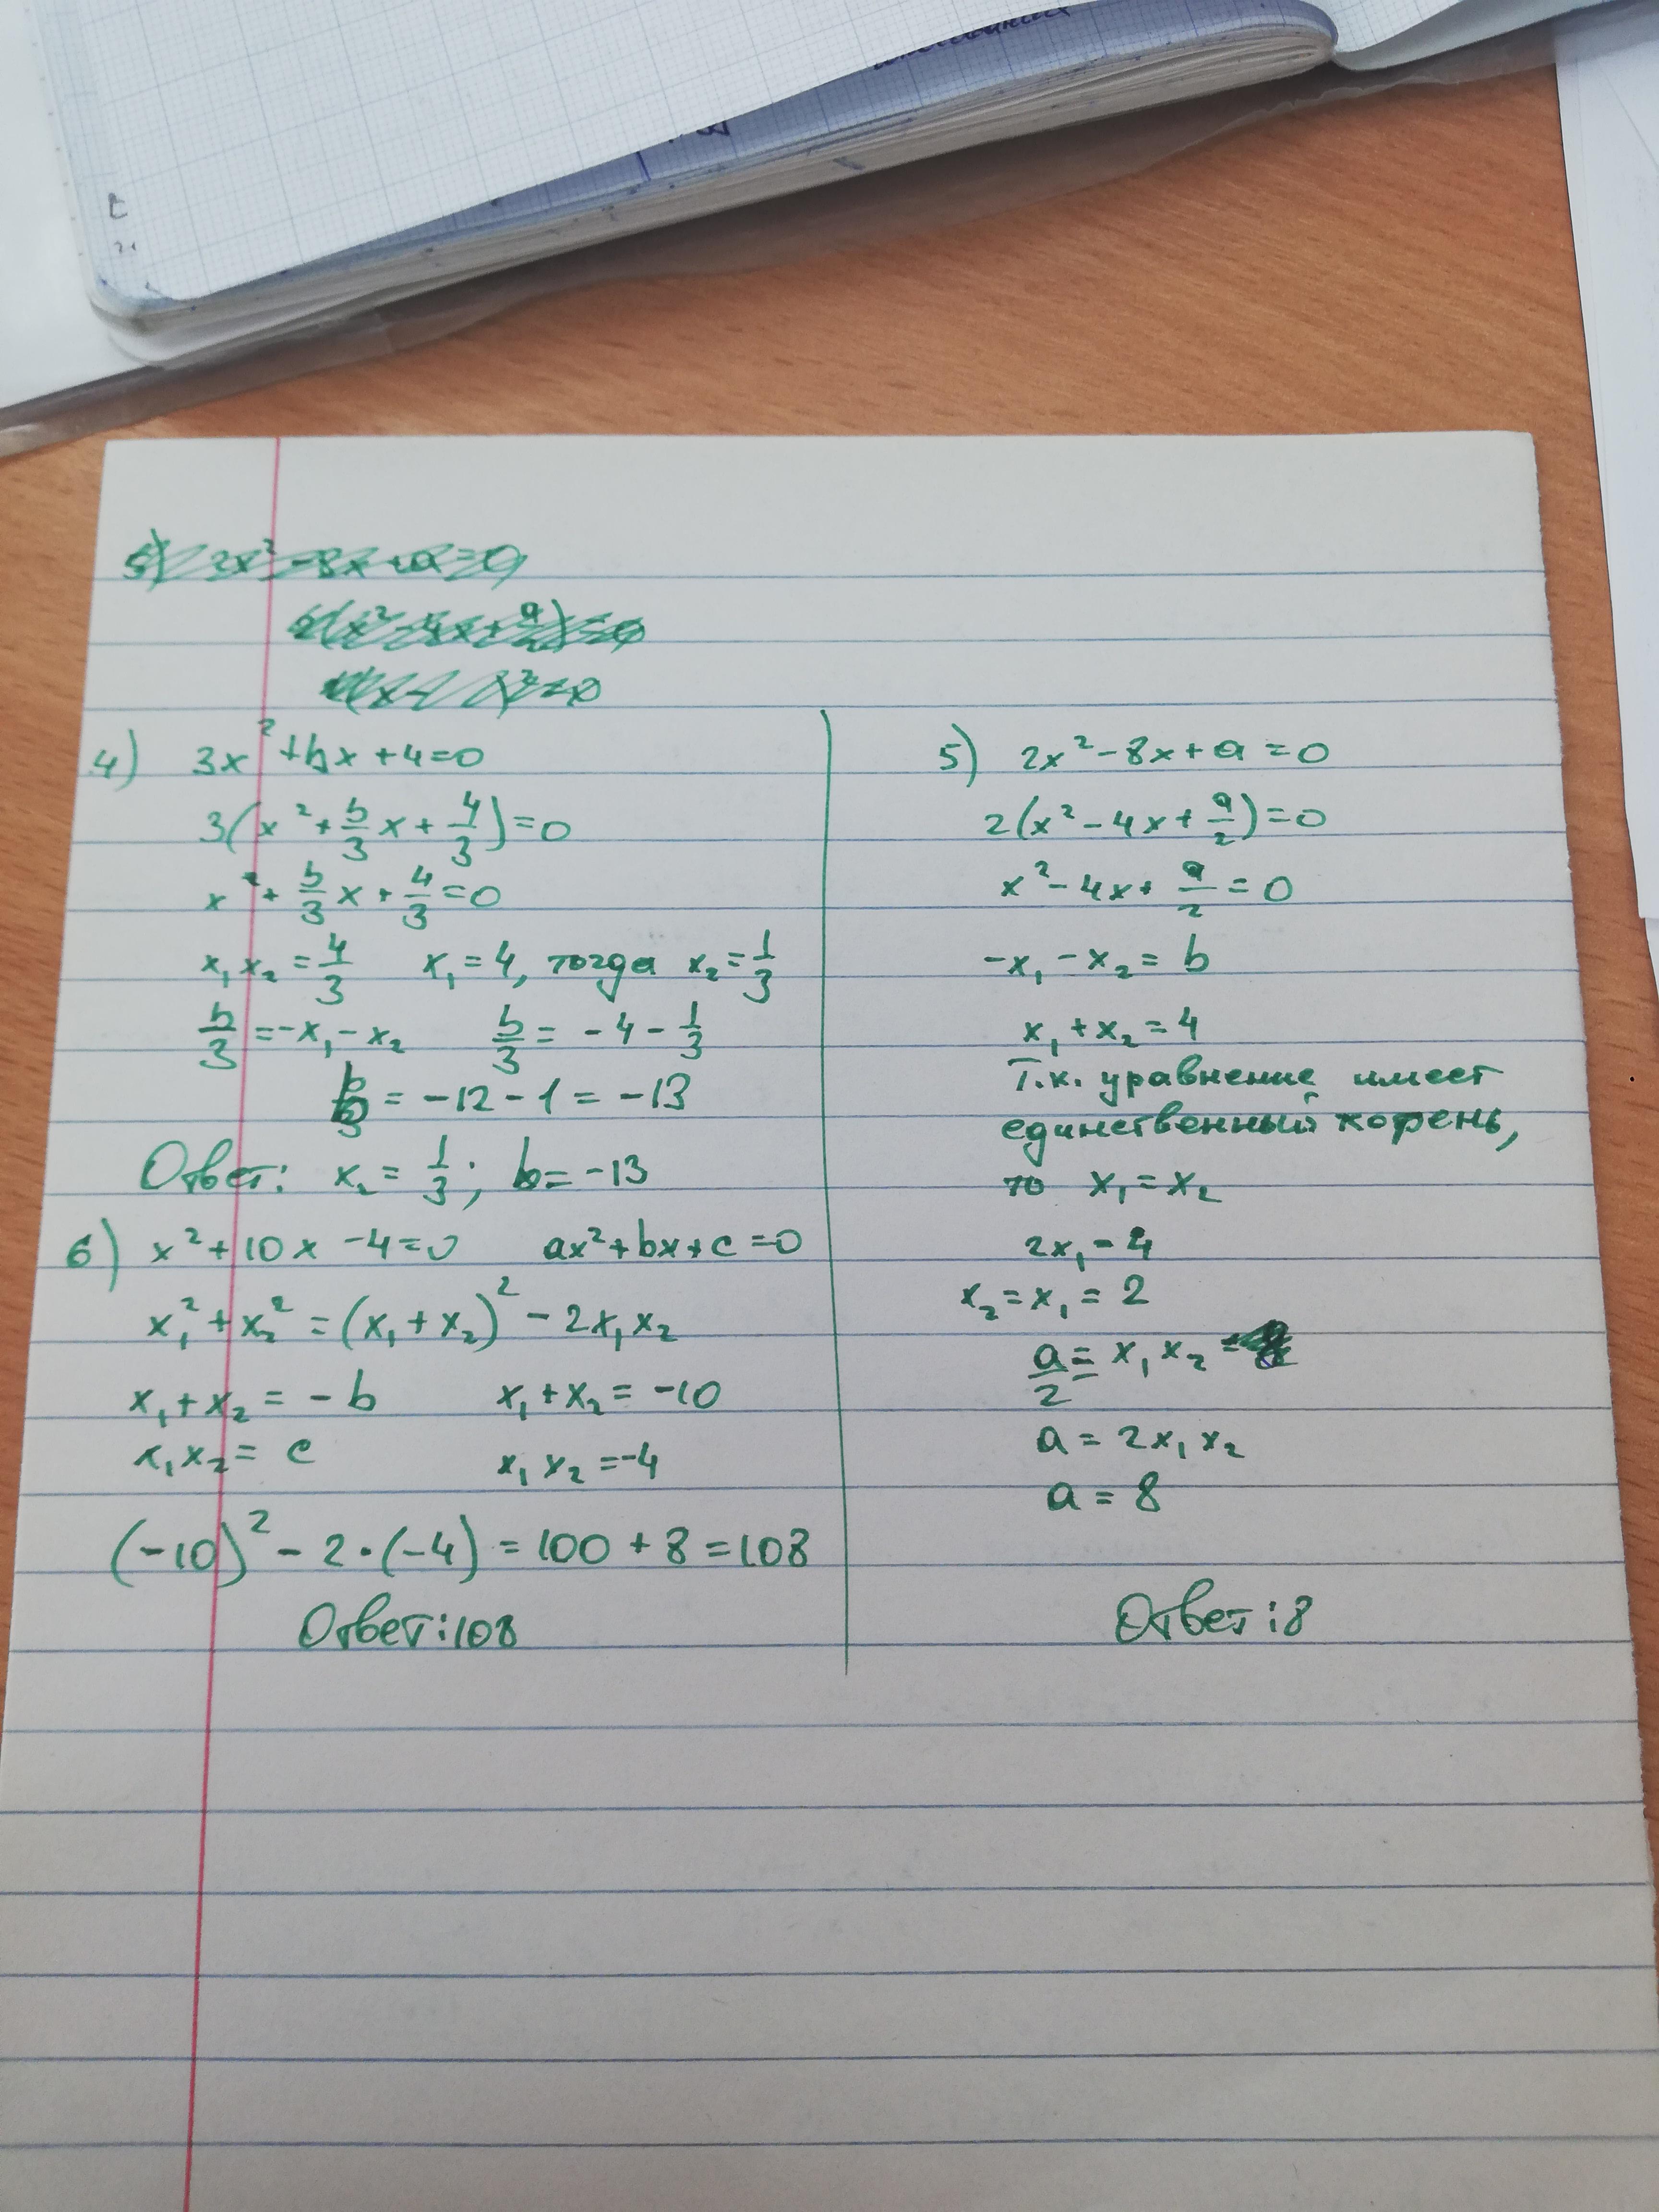 4) 3x² + bx + 4 = 0
3(x² + b/3 x + 4/3) = 0
x² + b/3 x + 4/3 = 0
x₁x₂ = 4/3 x₁ = 4, тогда x₂ = 1/3
b/3 = -x₁ - x₂ b/3 = -4 - 1/3
b = -12 - 1 = -13
Ответ: x₂ = 1/3; b = -13
6) x² + 10x - 4 = 0 ax² + bx + c = 0
x₁² + x₂² = (x₁ + x₂)² - 2x₁x₂
x₁ + x₂ = -b x₁ + x₂ = -10
x₁x₂ = c x₁x₂ = -4
(-10)² - 2·(-4) = 100 + 8 = 108
Ответ: 108
5) 2x² - 8x + a = 0
2(x² - 4x + a/2) = 0
x² - 4x + a/2 = 0
-x₁ - x₂ = b
x₁ + x₂ = 4
Т.к. уравнение имеет
единственный корень,
то x₁ = x₂
2x₁ = 4
x₂ = x₁ = 2
a/2 = x₁x₂
a = 2x₁x₂
a = 8
Ответ: 8